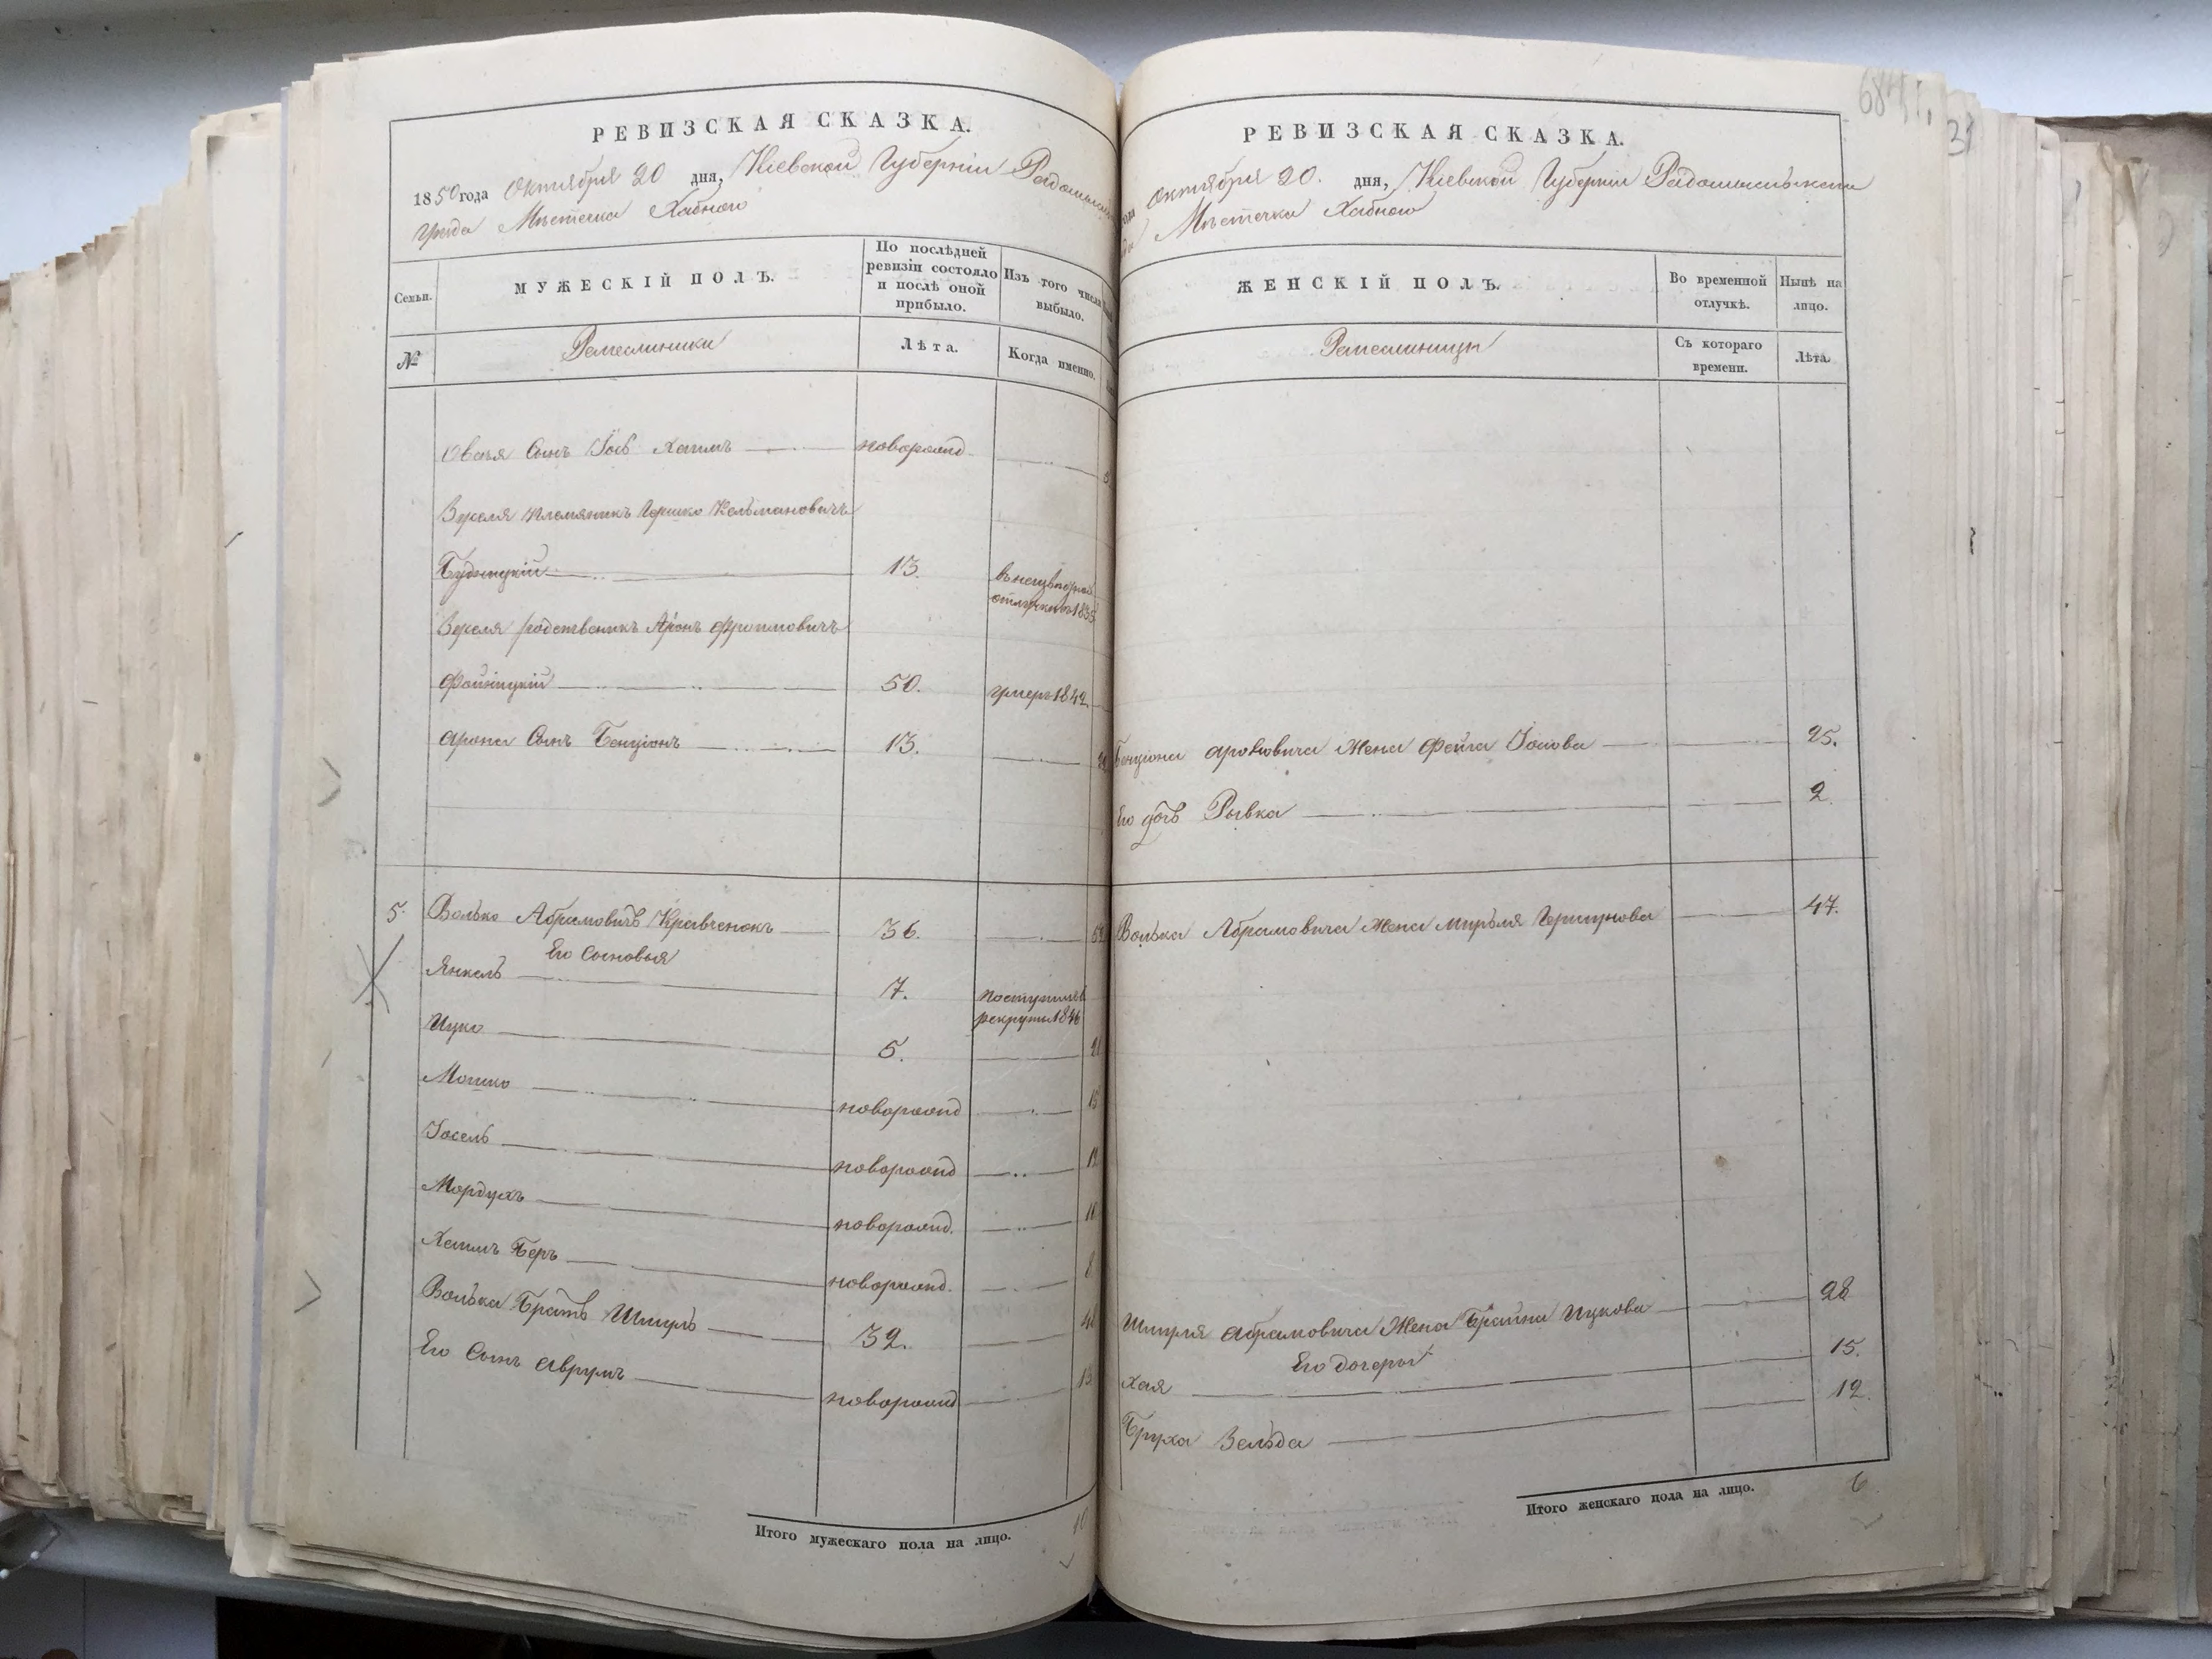 РЕВИЗСКАЯ СКАЗКА.
1850 года Октября 20 дня, Кіевской Губерніи
Уѣзда Мѣстечка Хабного
Семьи.
МУЖЕСКІЙ ПОЛЪ.
По послѣдней ревизіи состояло и послѣ оной прибыло.
Изъ того числа выбыло.
№
Ремеслиники
Лѣта.
Когда именно.
Овсѣя Сынъ Іось Хаимъ новорожд
племяникъ Гершко Кельмановичъ
Будницкій 13.
въ неизвѣстной
отлучкѣ съ 1835
родственикъ Аронъ Фроимовичъ
50. умеръ 1842.
Арона Сынъ Бенціонъ 13.
5. Волько Абрамовичъ Кравченокъ 36.
Его Сыновья
Янкель 7. поступилъ в
рекруты 1846
Ицко 5.
Мошко новорожд
Іосель новорожд
Мордухъ новорожд.
Хаимъ Беръ новорожд.
Волька Братъ Шмуль 32.
Его Сынъ Аврумъ новорожд
Итого мужескаго пола на лицо. 10
684
31
РЕВИЗСКАЯ СКАЗКА.
Октября 20. дня, Кіевской Губерніи Радомысльскаго
Мѣстечка Хабного
ЖЕНСКІЙ ПОЛЪ.
Во временной отлучкѣ.
Нынѣ на лицо.
Ремеслиницы
Съ котораго времени.
Лѣта.
Бенціона Ароновича Жена Фейга Іосіова 25.
Его дочь Рывка 2.
Волька Абрамовича Жена Мирьля Гершунова 47.
Шмуля Абрамовича Жена Брайна Ицкова 28
Его дочеры
Хая 15.
Бруха Зельда 12.
Итого женскаго пола на лицо. 6